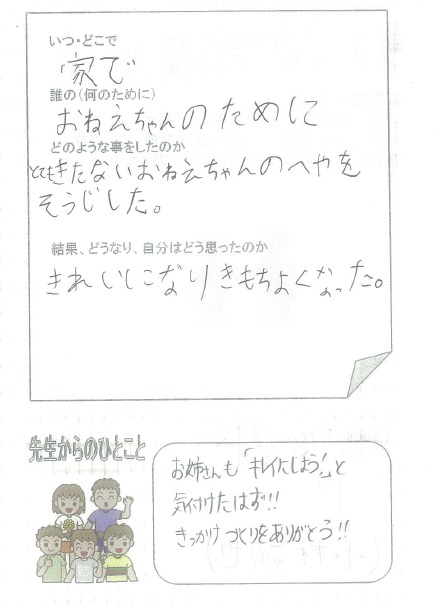 いつ・どこで
家で
誰の(何のために)
おねえちゃんのために
どのような事をしたのか
とてもきたないおねえちゃんのへやを
そうじした。
結果、どうなり、自分はどう思ったのか
きれいになりきもちよくなった。
先生からのひとこと
お姉さんも「キレイにしよう!」と
気付けたはず!!
きっかけづくりをありがとう!!